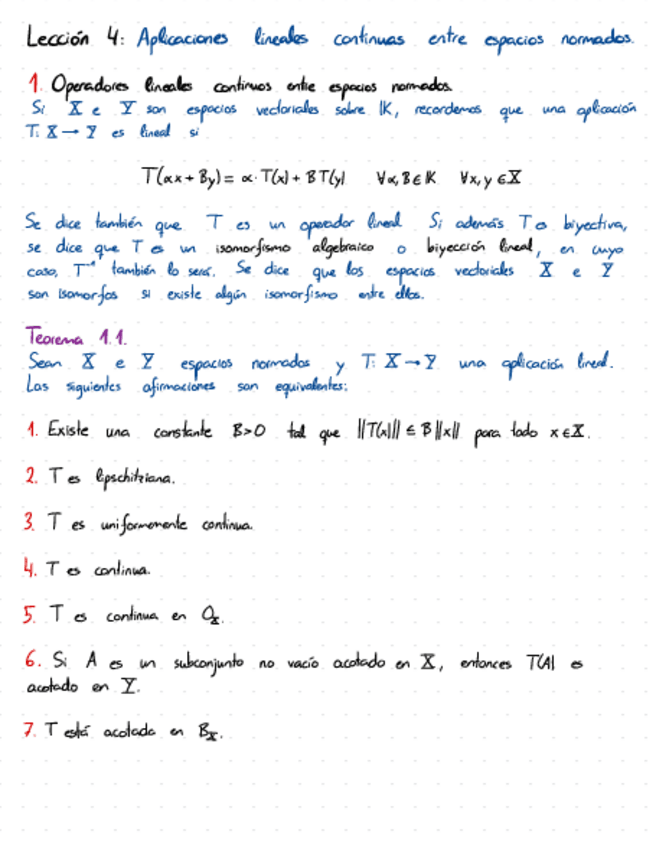 Lección 4: Aplicaciones lineales continuas entre espacios normados.
1. Operadores lineales continuos entre espacios normados.
Si X e Y son espacios vectoriales sobre K, recordemos que una aplicación
T: X → Y es lineal si
T(αx + βy) = α·T(x) + βT(y) ∀α, β ∈ K ∀x, y ∈ X
Se dice también que T es un operador lineal Si además T es biyectiva,
se dice que T es un isomorfismo algebraico o biyección lineal, en cuyo
caso, T⁻¹ también lo será. Se dice que los espacios vectoriales X e Y
son isomorfos si existe algún isomorfismo entre ellos.
Teorema 1.1.
Sean X e Y espacios normados y T: X → Y una aplicación lineal.
Las siguientes afirmaciones son equivalentes:
1. Existe una constante B>0 tal que ||T(x)|| ≤ B||x|| para todo x ∈ X.
2. T es lipschitziana.
3. T es uniformemente continua.
4. T es continua.
5. T es continua en 0_X.
6. Si A es un subconjunto no vacío acotado en X, entonces T(A) es
acotado en Y.
7. T está acotada en B_X.